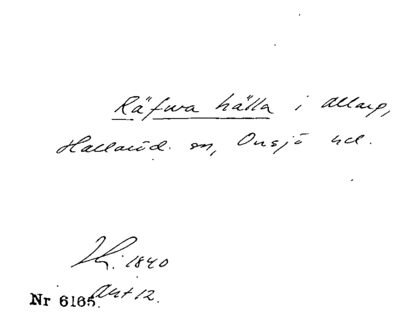 Räfwa hälla i allmg,
Halland. sn, Onsjö hd.
1840
Nr 6165. Akt 12.